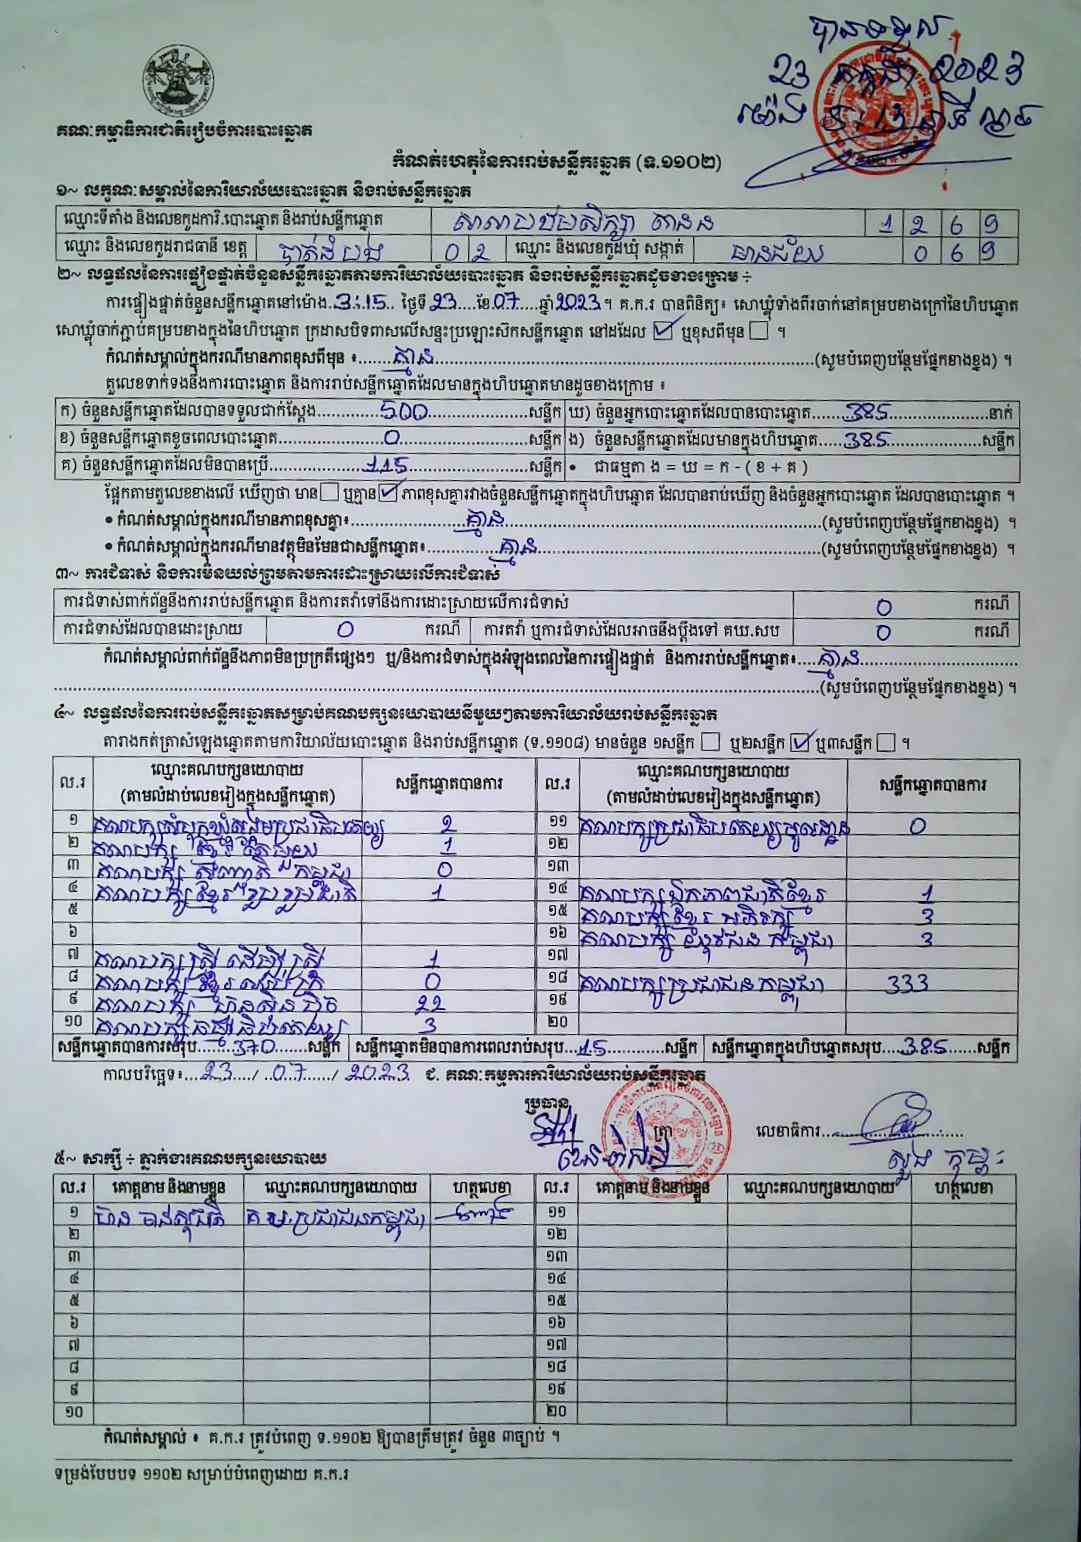 បានទទួល
23 កក្កដា 2023
ម៉ោង
គណៈកម្មាធិការជាតិរៀបចំការបោះឆ្នោត
កំណត់ហេតុនៃការរាប់សន្លឹកឆ្នោត (ទ.១១០២)
១~ លក្ខណៈសម្គាល់នៃការិយាល័យបោះឆ្នោត និងរាប់សន្លឹកឆ្នោត
ឈ្មោះទីតាំង និងលេខកូដការិ.បោះឆ្នោត និងរាប់សន្លឹកឆ្នោត សាលាបឋមសិក្សា តានន 1 2 6 9
ឈ្មោះ និងលេខកូដរាជធានី ខេត្ត បាត់ដំបង 0 2 ឈ្មោះ និងលេខកូដឃុំ សង្កាត់ មានជ័យ 0 6 9
២~ លទ្ធផលនៃការផ្ទៀងផ្ទាត់ចំនួនសន្លឹកឆ្នោតតាមការិយាល័យបោះឆ្នោត និងរាប់សន្លឹកឆ្នោតដូចខាងក្រោម ÷
ការផ្ទៀងផ្ទាត់ចំនួនសន្លឹកឆ្នោតនៅម៉ោង 3:15 ថ្ងៃទី 23 ខែ 07 ឆ្នាំ 2023 ។ គ.ក.រ បានពិនិត្យ៖ សោឃ្លុំទាំងពីរចាក់នៅគម្របខាងក្រៅនៃហិបឆ្នោត
សោឃ្លុំចាក់ភ្ជាប់គម្របខាងក្នុងនៃហិបឆ្នោត ក្រដាសបិទពាសលើសន្ទះប្រឡោះសិកសន្លឹកឆ្នោត នៅដដែល ☑ ឬខុសពីមុន ☐ ។
កំណត់សម្គាល់ក្នុងករណីមានភាពខុសពីមុន ៖ គ្មាន (សូមបំពេញបន្ថែមផ្នែកខាងខ្នង) ។
តួលេខទាក់ទងនឹងការបោះឆ្នោត និងការរាប់សន្លឹកឆ្នោតដែលមានក្នុងហិបឆ្នោតមានដូចខាងក្រោម ៖
ក) ចំនួនសន្លឹកឆ្នោតដែលបានទទួលជាក់ស្តែង 500 សន្លឹក ឃ) ចំនួនអ្នកបោះឆ្នោតដែលបានបោះឆ្នោត 385 នាក់
ខ) ចំនួនសន្លឹកឆ្នោតខូចពេលបោះឆ្នោត 0 សន្លឹក ង) ចំនួនសន្លឹកឆ្នោតដែលមានក្នុងហិបឆ្នោត 385 សន្លឹក
គ) ចំនួនសន្លឹកឆ្នោតដែលមិនបានប្រើ 115 សន្លឹក • ជាធម្មតា ង = ឃ = ក - ( ខ + គ )
ផ្អែកតាមតួលេខខាងលើ ឃើញថា មាន ☐ ឬគ្មាន ☑ ភាពខុសគ្នារវាងចំនួនសន្លឹកឆ្នោតក្នុងហិបឆ្នោត ដែលបានរាប់ឃើញ និងចំនួនអ្នកបោះឆ្នោត ដែលបានបោះឆ្នោត ។
• កំណត់សម្គាល់ក្នុងករណីមានភាពខុសគ្នា៖ គ្មាន (សូមបំពេញបន្ថែមផ្នែកខាងខ្នង) ។
• កំណត់សម្គាល់ក្នុងករណីមានវត្ថុមិនមែនជាសន្លឹកឆ្នោត៖ គ្មាន (សូមបំពេញបន្ថែមផ្នែកខាងខ្នង) ។
៣~ ការជំទាស់ និងការមិនយល់ព្រមតាមការដោះស្រាយលើការជំទាស់
ការជំទាស់ពាក់ព័ន្ធនឹងការរាប់សន្លឹកឆ្នោត និងការតវ៉ាទៅនឹងការដោះស្រាយលើការជំទាស់ 0 ករណី
ការជំទាស់ដែលបានដោះស្រាយ 0 ករណី ការតវ៉ា ឬការជំទាស់ដែលអាចនឹងប្តឹងទៅ គឃ.សប 0 ករណី
កំណត់សម្គាល់ពាក់ព័ន្ធនឹងភាពមិនប្រក្រតីផ្សេងៗ ឬ/និងការជំទាស់ក្នុងអំឡុងពេលនៃការផ្ទៀងផ្ទាត់ និងការរាប់សន្លឹកឆ្នោត៖ គ្មាន
(សូមបំពេញបន្ថែមផ្នែកខាងខ្នង) ។
៤~ លទ្ធផលនៃការរាប់សន្លឹកឆ្នោតសម្រាប់គណបក្សនយោបាយនីមួយៗតាមការិយាល័យរាប់សន្លឹកឆ្នោត
តារាងកត់ត្រាសំឡេងឆ្នោតតាមការិយាល័យបោះឆ្នោត និងរាប់សន្លឹកឆ្នោត (ទ.១១០៨) មានចំនួន ១សន្លឹក ☐ ឬ២សន្លឹក ☑ ឬ៣សន្លឹក ☐ ។
ល.រ ឈ្មោះគណបក្សនយោបាយ (តាមលំដាប់លេខរៀងក្នុងសន្លឹកឆ្នោត) សន្លឹកឆ្នោតបានការ ល.រ ឈ្មោះគណបក្សនយោបាយ (តាមលំដាប់លេខរៀងក្នុងសន្លឹកឆ្នោត) សន្លឹកឆ្នោតបានការ
១ គណបក្សសំបុកឃ្មុំសង្គមប្រជាធិបតេយ្យ 2 ១១ គណបក្សប្រជាធិបតេយ្យមូលដ្ឋាន 0
២ គណបក្ស ខ្មែរតែមួយ 1 ១២
៣ គណបក្ស សញ្ជាតិ កម្ពុជា 0 ១៣
៤ គណបក្ស ខ្មែរ រួបរួមជាតិ 1 ១៤ គណបក្សឯកភាពជាតិខ្មែរ 1
៥ ១៥ គណបក្សខ្មែរ អភិរក្ស 3
៦ ១៦ គណបក្ស យុវជន កម្ពុជា 3
៧ គណបក្សស្ត្រី ដើម្បី ស្ត្រី 1 ១៧
៨ គណបក្ស ខ្មែរ ឈប់ក្រ 0 ១៨ គណបក្សប្រជាជន កម្ពុជា 333
៩ គណបក្ស ហ៊្វុនស៊ិនប៉ិច 22 ១៩
១០ គណបក្សធម្មាធិបតេយ្យ 3 ២០
សន្លឹកឆ្នោតបានការសរុប 370 សន្លឹក សន្លឹកឆ្នោតមិនបានការពេលរាប់សរុប 15 សន្លឹក សន្លឹកឆ្នោតក្នុងហិបឆ្នោតសរុប 385 សន្លឹក
កាលបរិច្ឆេទ៖ 23 / 07 / 2023 ជ. គណៈកម្មការការិយាល័យរាប់សន្លឹកឆ្នោត
ប្រធាន
ត្រា លេខាធិការ
៥~ សាក្សី ÷ ភ្នាក់ងារគណបក្សនយោបាយ
ល.រ គោត្តនាម និងនាមខ្លួន ឈ្មោះគណបក្សនយោបាយ ហត្ថលេខា ល.រ គោត្តនាម និងនាមខ្លួន ឈ្មោះគណបក្សនយោបាយ ហត្ថលេខា
១ គ.ប.ប្រជាជនកម្ពុជា ១១
២ ១២
៣ ១៣
៤ ១៤
៥ ១៥
៦ ១៦
៧ ១៧
៨ ១៨
៩ ១៩
១០ ២០
កំណត់សម្គាល់ ៖ គ.ក.រ ត្រូវបំពេញ ទ.១១០២ ឱ្យបានត្រឹមត្រូវ ចំនួន ៣ច្បាប់ ។
ទម្រង់បែបបទ ១១០២ សម្រាប់បំពេញដោយ គ.ក.រ